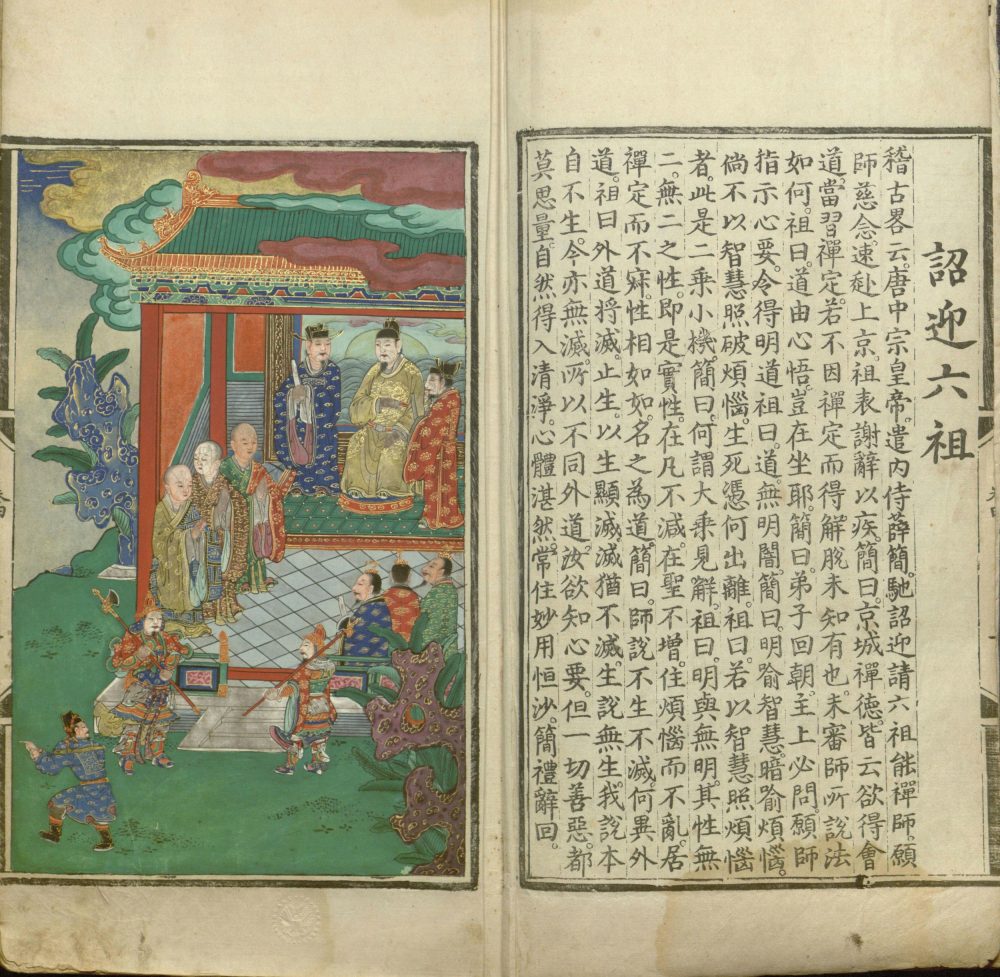 詔迎六祖
稽古畧云。唐中宗皇帝。遣內侍薛簡。馳詔迎請六祖能禪師。願
師慈念。速赴上京。祖表謝辭以疾。簡曰。京城禪德皆云欲得會
道。當習禪定。若不因禪定而得解脫未知有也。未審師所說法
如何。祖曰。道由心悟。豈在坐耶。簡曰。弟子回朝。主上必問。願師
指示心要。令得明道。祖曰。道。無明闇。簡曰。明喻智慧暗喻煩惱。
倘不以智慧照破煩惱。生死憑何出離。祖曰。若以智慧照煩惱
者。此是二乘小機。簡曰。何謂大乘見解。祖曰。明與無明。其性無
二。無二之性。即是實性。在凡不減。在聖不增。住煩惱而不亂。居
禪定而不寂。性相如如。名之為道。簡曰。師說不生不滅。何異外
道。祖曰外道將滅。止生。以生顯滅。滅猶不滅。生說無生。我說本
自不生。今亦無滅。所以不同外道。汝欲知心要。但一切善惡。都
莫思量。自然得入清淨。心體湛然。常住妙用恒沙。簡禮辭回。